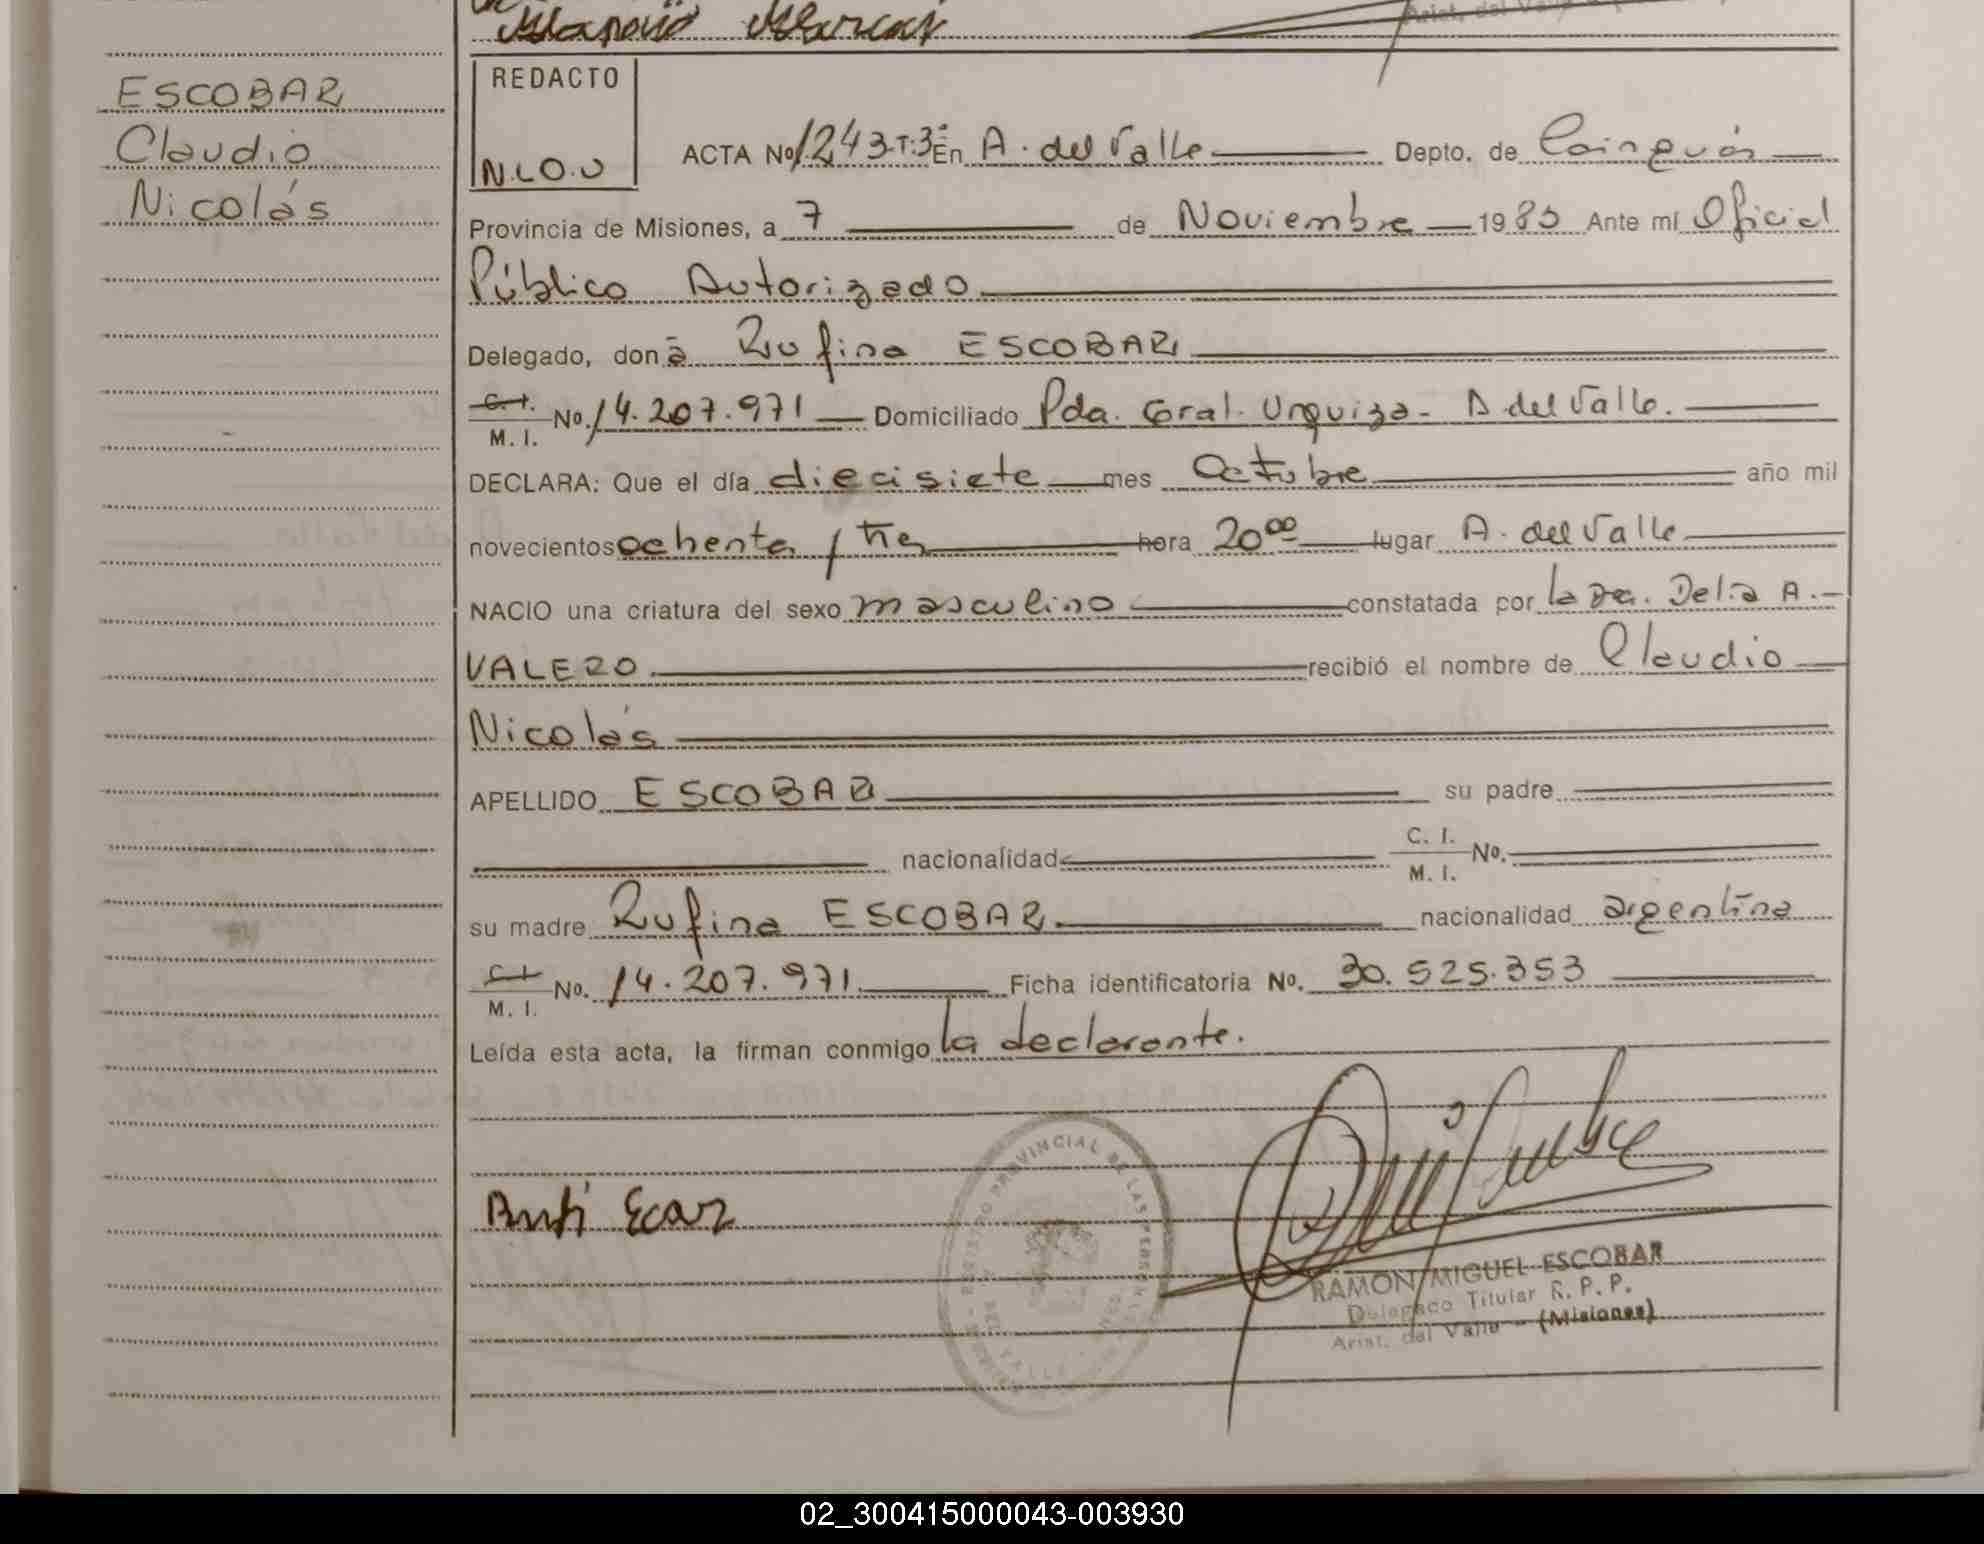 Marcos
Arist. del Valle
ESCOBAR
Claudio
Nicolás
REDACTO
N.L.O.U
ACTA No 1243-T:3º En A. del Valle Depto. de Cainguás
Provincia de Misiones, a 7 de Noviembre 1983 Ante mí Oficial
Público Autorizado
Delegado, don a Rufina ESCOBAR
C. I. M. I. No. 14.207.971 Domiciliado Pda. Gral. Urquiza - A del Valle.
DECLARA: Que el día diecisiete mes Octubre año mil
novecientos ochenta y tres hora 20⁰⁰ lugar A. del Valle
NACIO una criatura del sexo masculino constatada por la Dra. Delia A.-
VALERO recibió el nombre de Claudio
Nicolás
APELLIDO ESCOBAR su padre
nacionalidad C. I. M. I. No.
su madre Rufina ESCOBAR nacionalidad argentina
C. I. M. I. No. 14.207.971. Ficha identificatoria No. 30.525.353
Leída esta acta, la firman conmigo la declarante.
REGISTRO PROVINCIAL DE LAS PERSONAS
DEL VALLE
RAMON MIGUEL ESCOBAR
Delegado Titular R. P. P.
Arist. del Valle - (Misiones)
02_300415000043-003930